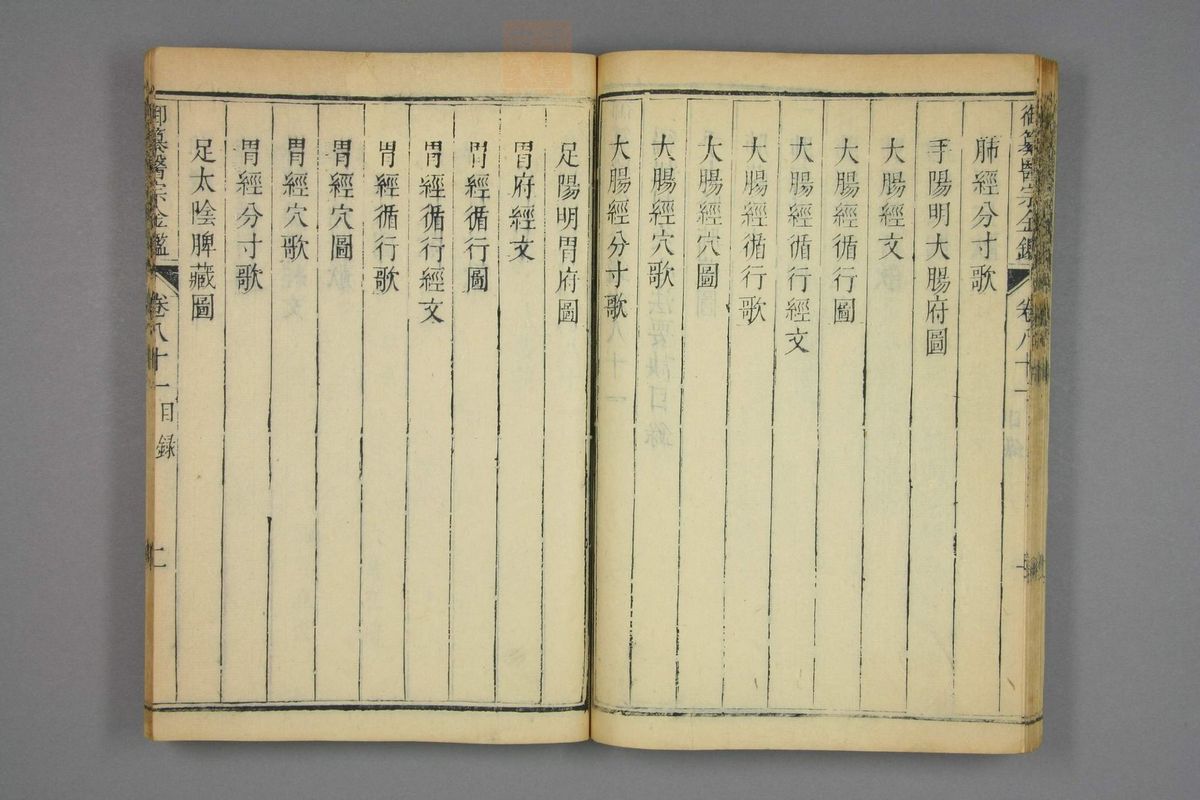 御纂醫宗金鑑 卷八十一
肺經分寸歌
手陽明大腸府圖
大腸經文
大腸經循行圖
大腸經循行經文
大腸經循行歌
大腸經穴圖
大腸經穴歌
大腸經分寸歌
足陽明胃府圖
胃府經文
胃經循行圖
胃經循行經文
胃經循行歌
胃經穴圖
胃經穴歌
胃經分寸歌
足太陰脾藏圖
御纂醫宗金鑑 卷八十一目錄 二